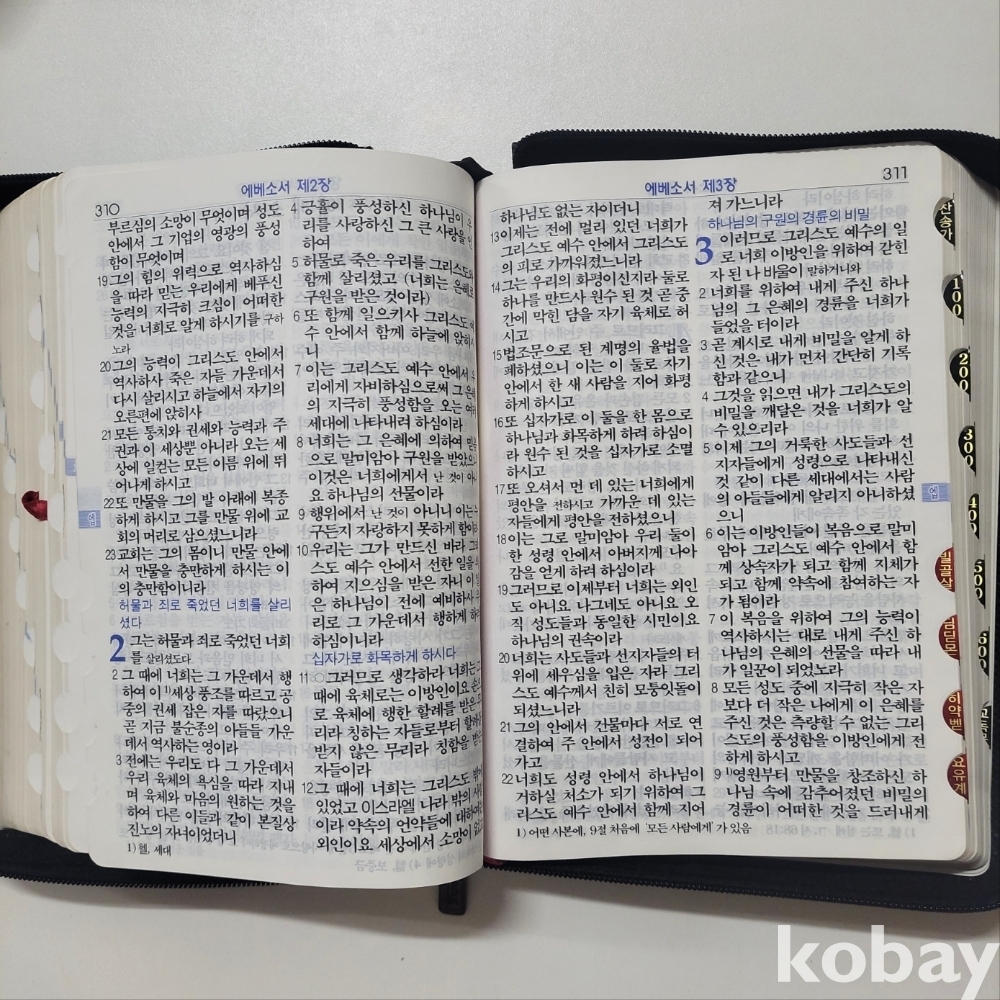 에베소서 제2장
310
부르심의 소망이 무엇이며 성도
안에서 그 기업의 영광의 풍성
함이 무엇이며
19 그의 힘의 위력으로 역사하심
을 따라 믿는 우리에게 베푸신
능력의 지극히 크심이 어떠한
것을 너희로 알게 하시기를 구하
노라
20 그의 능력이 그리스도 안에서
역사하사 죽은 자들 가운데서
다시 살리시고 하늘에서 자기의
오른편에 앉히사
21 모든 통치와 권세와 능력과 주
권과 이 세상뿐 아니라 오는 세
상에 일컫는 모든 이름 위에 뛰
어나게 하시고
22 또 만물을 그의 발 아래에 복종
하게 하시고 그를 만물 위에 교
회의 머리로 삼으셨느니라
23 교회는 그의 몸이니 만물 안에
서 만물을 충만하게 하시는 이
의 충만함이니라
허물과 죄로 죽었던 너희를 살리
셨다
2 그는 허물과 죄로 죽었던 너희
를 살리셨도다
2 그 때에 너희는 그 가운데서 행
하여 이 1)세상 풍조를 따르고 공
중의 권세 잡은 자를 따랐으니
곧 지금 불순종의 아들들 가운
데서 역사하는 영이라
3 전에는 우리도 다 그 가운데서
우리 육체의 욕심을 따라 지내
며 육체와 마음의 원하는 것을
하여 다른 이들과 같이 본질상
진노의 자녀이었더니
1) 헬, 세대
4 긍휼이 풍성하신 하나님이 우
리를 사랑하신 그 큰 사랑을 인
하여
5 허물로 죽은 우리를 그리스도와
함께 살리셨고 (너희는 은혜로
구원을 받은 것이라)
6 또 함께 일으키사 그리스도 예
수 안에서 함께 하늘에 앉히시
니
7 이는 그리스도 예수 안에서 우
리에게 자비하심으로써 그 은혜
의 지극히 풍성함을 오는 여러
세대에 나타내려 하심이라
8 너희는 그 은혜에 의하여 믿음
으로 말미암아 구원을 받았으니
이것은 너희에게서 난 것이 아니
요 하나님의 선물이라
9 행위에서 난 것이 아니니 이는 누
구든지 자랑하지 못하게 함이라
10 우리는 그가 만드신 바라 그리
스도 예수 안에서 선한 일을 위
하여 지으심을 받은 자니 이 일
은 하나님이 전에 예비하사 우
리로 그 가운데서 행하게 하려
하심이니라
십자가로 화목하게 하시다
11 그러므로 생각하라 너희는 그
때에 육체로는 이방인이요 손으
로 육체에 행한 할례를 받은 무
리라 칭하는 자들로부터 할례를
받지 않은 무리라 칭함을 받는
자들이라
12 그 때에 너희는 그리스도 밖에
있었고 이스라엘 나라 밖의 사람
이라 약속의 언약들에 대하여는
외인이요 세상에서 소망이 없고
에베소서 제3장
311
하나님도 없는 자이더니
13 이제는 전에 멀리 있던 너희가
그리스도 예수 안에서 그리스도
의 피로 가까워졌느니라
14 그는 우리의 화평이신지라 둘로
하나를 만드사 원수 된 것 곧 중
간에 막힌 담을 자기 육체로 허
시고
15 법조문으로 된 계명의 율법을
폐하셨으니 이는 이 둘로 자기
안에서 한 새 사람을 지어 화평
하게 하시고
16 또 십자가로 이 둘을 한 몸으로
하나님과 화목하게 하려 하심이
라 원수 된 것을 십자가로 소멸
하시고
17 또 오셔서 먼 데 있는 너희에게
평안을 전하시고 가까운 데 있는
자들에게 평안을 전하셨으니
18 이는 그로 말미암아 우리 둘이
한 성령 안에서 아버지께 나아
감을 얻게 하려 하심이라
19 그러므로 이제부터 너희는 외인
도 아니요 나그네도 아니요 오
직 성도들과 동일한 시민이요
하나님의 권속이라
20 너희는 사도들과 선지자들의 터
위에 세우심을 입은 자라 그리
스도 예수께서 친히 모퉁잇돌이
되셨느니라
21 그의 안에서 건물마다 서로 연
결하여 주 안에서 성전이 되어
가고
22 너희도 성령 안에서 하나님이
거하실 처소가 되기 위하여 그
리스도 예수 안에서 함께 지어
1) 어떤 사본에, 9절 처음에 '모든 사람에게'가 있음
져 가느니라
하나님의 구원의 경륜의 비밀
3 이러므로 그리스도 예수의 일
로 너희 이방인을 위하여 갇힌
자 된 나 바울이 말하거니와
2 너희를 위하여 내게 주신 하나
님의 그 은혜의 경륜을 너희가
들었을 터이라
3 곧 계시로 내게 비밀을 알게 하
신 것은 내가 먼저 간단히 기록
함과 같으니
4 그것을 읽으면 내가 그리스도의
비밀을 깨달은 것을 너희가 알
수 있으리라
5 이제 그의 거룩한 사도들과 선
지자들에게 성령으로 나타내신
것 같이 다른 세대에서는 사람
의 아들들에게 알리지 아니하셨
으니
6 이는 이방인들이 복음으로 말미
암아 그리스도 예수 안에서 함
께 상속자가 되고 함께 지체가
되고 함께 약속에 참여하는 자
가 됨이라
7 이 복음을 위하여 그의 능력이
역사하시는 대로 내게 주신 하
나님의 은혜의 선물을 따라 내
가 일꾼이 되었노라
8 모든 성도 중에 지극히 작은 자
보다 더 작은 나에게 이 은혜를
주신 것은 측량할 수 없는 그리
스도의 풍성함을 이방인에게 전
하게 하시고
9 1)영원부터 만물을 창조하신 하
나님 속에 감추어졌던 비밀의
경륜이 어떠한 것을 드러내게
엡
엡
찬송가
100
200
300
400
500
600
빌골살
딤딛몬
히약벧
요유계
kobay